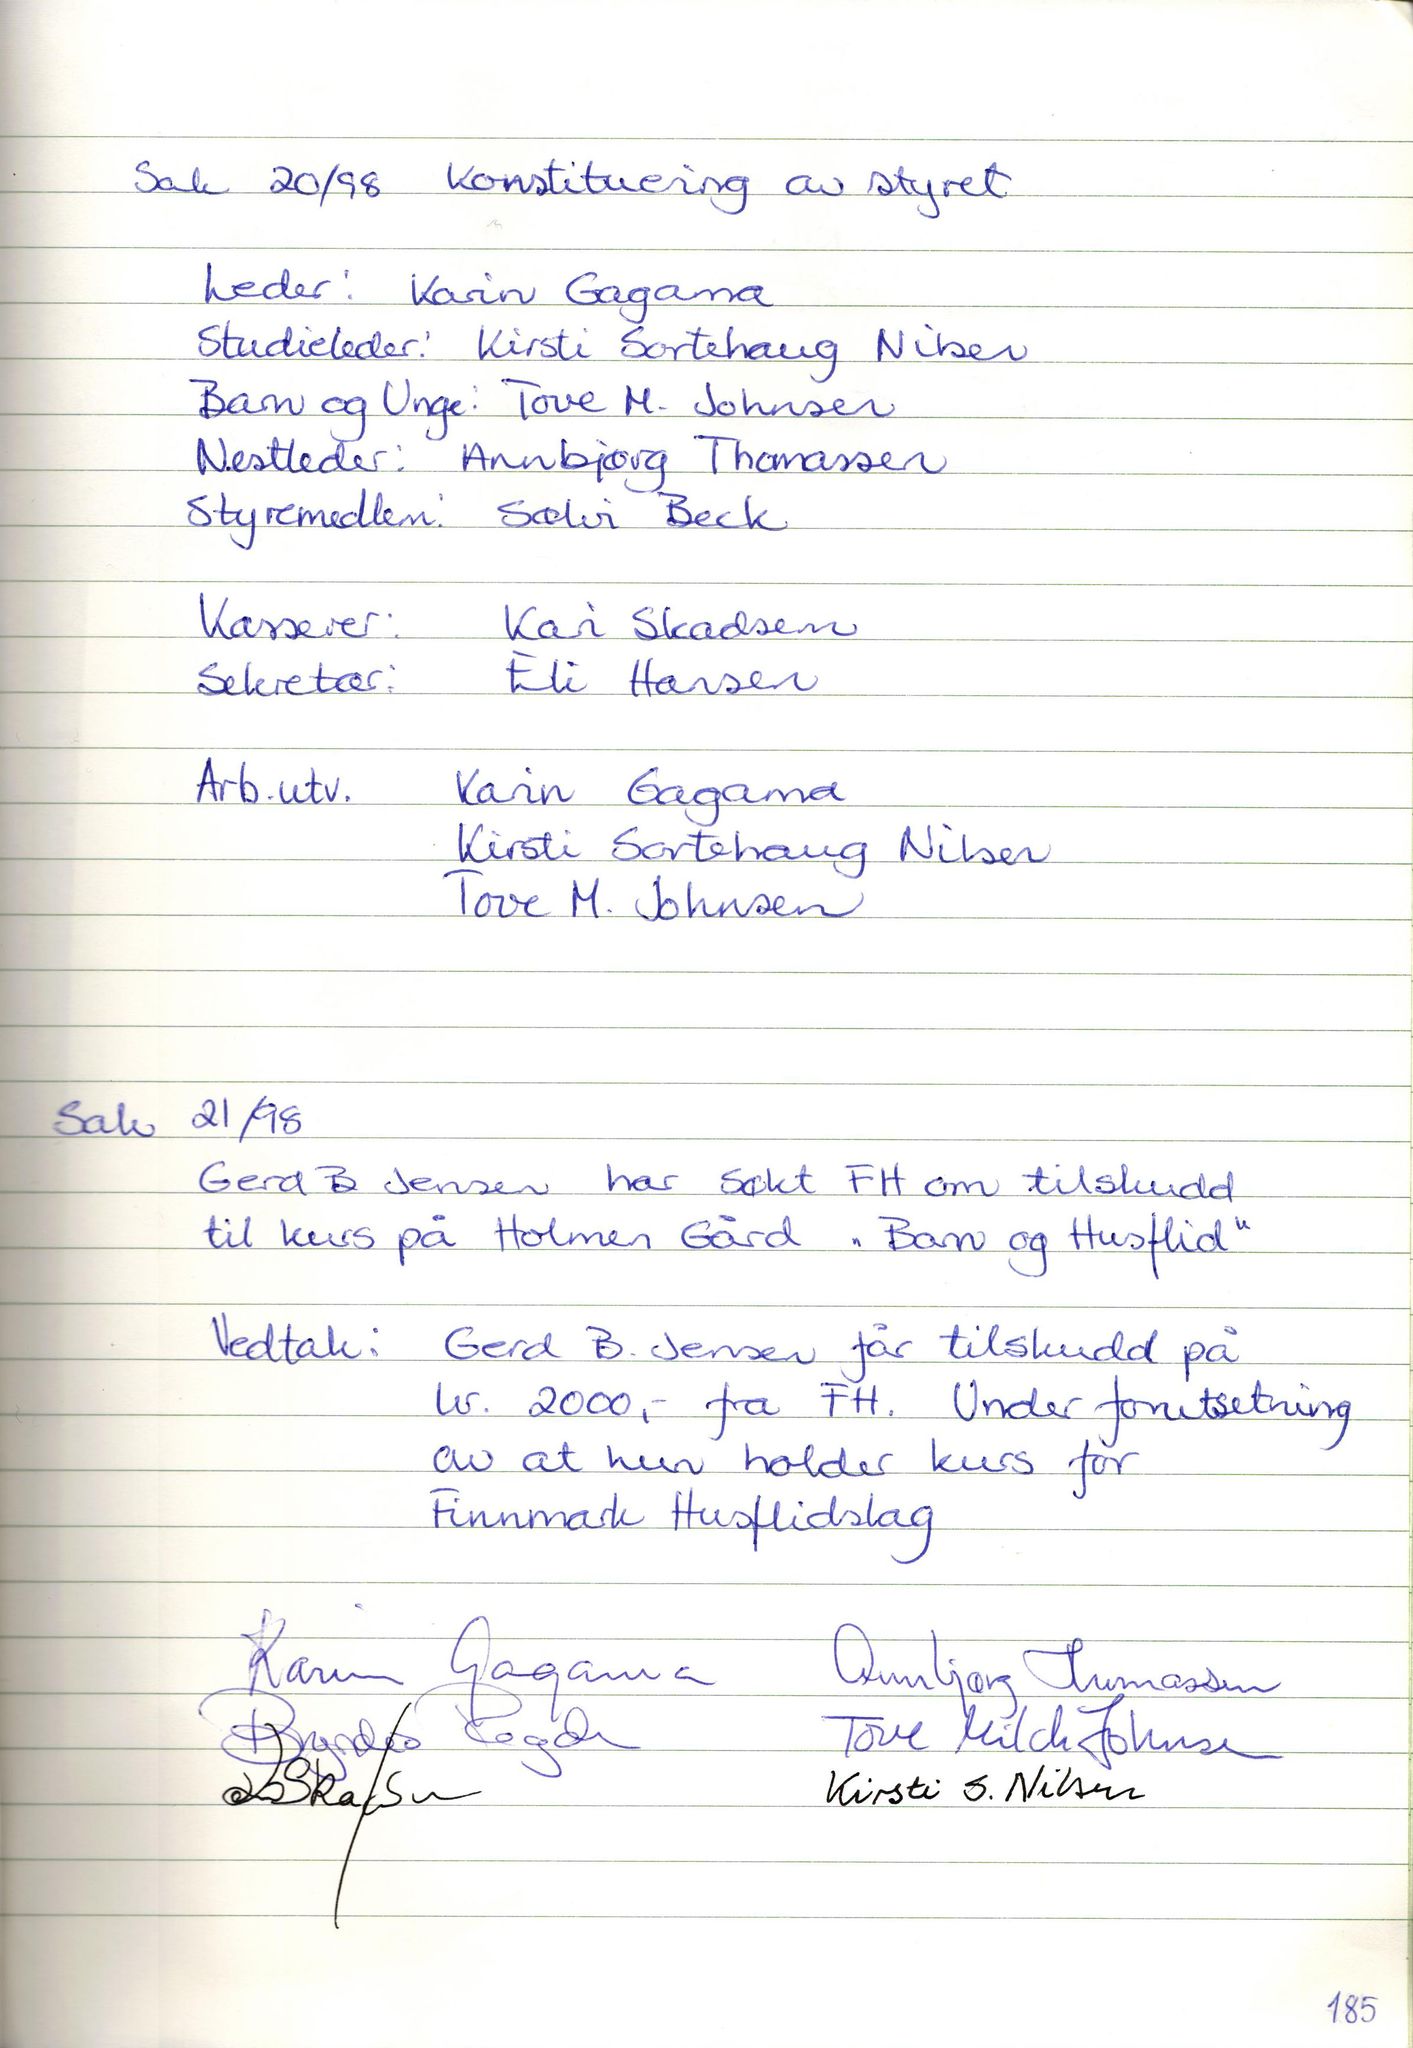 Sak 20/98 Konstituering av styret
Leder: Karin Gagama
Studieleder: Kirsti Sortehaug Nilsen
Barn og Unge: Tove M. Johnsen
Nestleder: Annbjørg Thomassen
Styremedlem: Sølvi Beck
Kasserer: Kari Skadsem
Sekretær: Eli Hansen
Arb.utv. Karin Gagama
Kirsti Sortehaug Nilsen
Tove M. Johnsen
Sak 21/98
Gerd B Jensen har søkt FH om tilskudd
til kurs på Holmen Gård "Barn og Husflid"
Vedtak: Gerd B. Jensen får tilskudd på
kr. 2000,- fra FH. Under forutsetning
av at hun holder kurs for
Finnmark Husflidslag
Karin Gagama Annbjørg Thomassen
Tove Milch Johnsen
Kirsti S. Nilsen
185